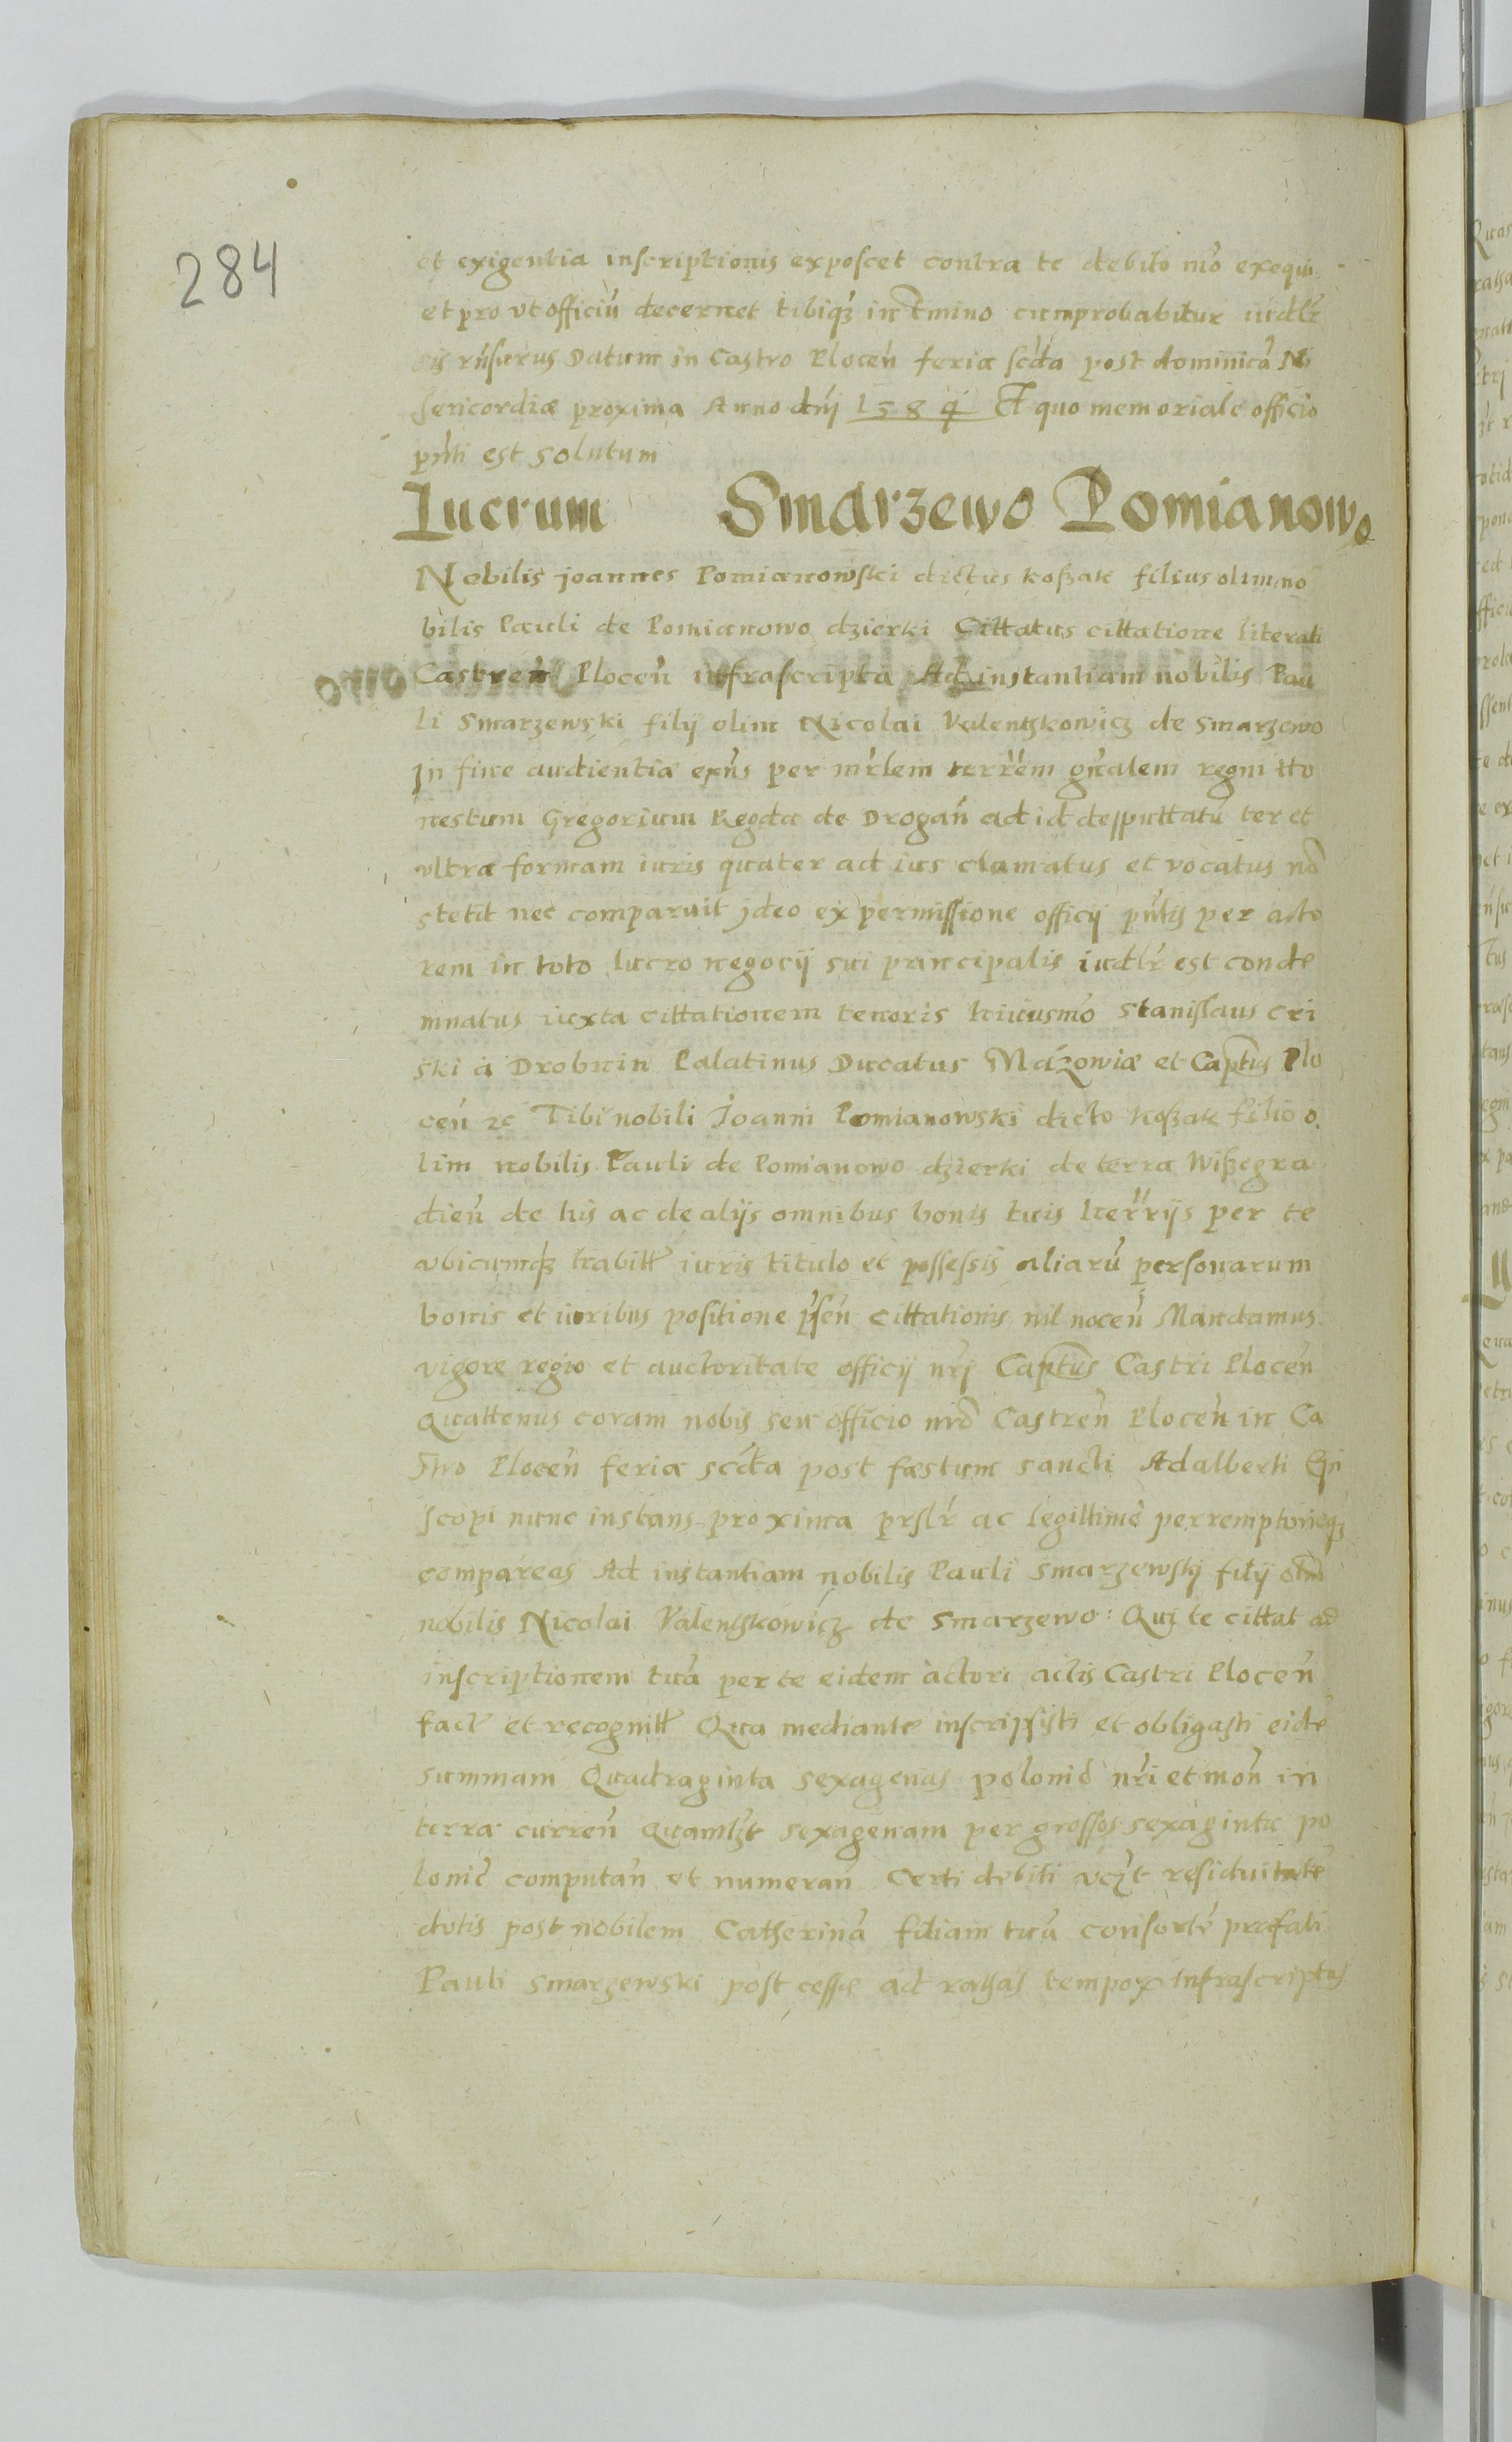 284
et exigentia inscriptionis exposcet contra te debito mō exequi
et pro vt officiū decernet tibiqȝ in tmino cumprobabitur iudlr
sis rn̄surus Datum in Castro Plocen̄ feria scd̄a post dominicā Mi
sericordiæ proxima Anno dn̄i 1584 A quo memoriale officio
pn̄ti est solutum
Lucrum Smarzewo Pomianowo
Nobilis joannes Pomianowski dictus koßak filius olim no
bilis Pauli de Pomianowo dzierki Cittatus cittatione literali
Castren̄ Plocen̄ infrascripta Ad instantiam nobilis Pau
li Smarzewski filij olim Nicolai Valentzkowicz de Smarzewo
In fine audientiæ exn̄s per mr̄lem terrr̄em gn̄ralem regni Ho
nestum Gregorium Regda de Drogan̄ ad id desputtatū ter et
vltra formam iuris quater ad ius clamatus et vocatus nō
stetit nec comparuit jdeo ex permissione officij pn̄tis per acto
rem in toto lucro negocij sui principalis iudlr̄ est conde
mnatus iuxta cittationem tenoris huiusmō Stanislaus cri
ski à Drobnin Palatinus Ducatus Mazowiæ et Captus Plo
cen̄ ⁊c Tibi nobili Joanni Pomianowski dicto koßak filio o
lim nobilis Pauli de Pomianowo dzierki de terra Wißegra
dien̄ de his ac de alijs omnibus bonis tuis hærr̄ijs per te
vbicumqȝ habitt iuris titulo et possessis aliarū personarum
bonis et iuribus positione pn̄sen̄ cittationis nil nocen̄ Mandamus
vigore regio et auctoritate officij nr̄j Captus Castri Plocen̄
Quattenus coram nobis seu officio nrō Castren̄ Plocen̄ in Ca
stro Plocen̄ feria scd̄a post fæstum sancti Adalberti Epi
scopi nunc instans proxima prslr̄ ac legittimè perremptorieqȝ
compareas Ad instantiam nobilis Pauli Smarzewskj filij olim
nobilis Nicolai Valentzkowicz de Smarzewo: Qui te cittat ad
inscriptionem tuā per te eidem actori actis Castri Plocen̄
fact et recognitt Qua mediante inscripsisti et obligasti eidē
summam Quadraginta sexagenas polonic nr̄i et mon̄ in
terra curren̄ Quamlȝt sexagenam per grossos sexaginta po
lonic computan̄ et numeran̄ Certi debiti vcȝt residuitatē
dotis post nobilem Catherinā filiam tuā consortē præfati
Pauli Smarzewski post cessæ ad rathas tempoꝝ infrascriptas